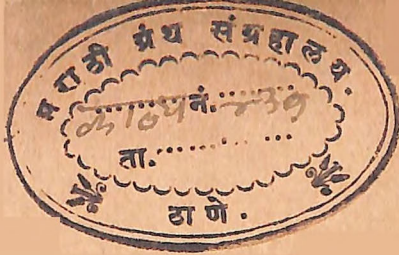 मराठी ग्रंथ संग्रहालय.
काव्य नं.
ता.
ठाणे.